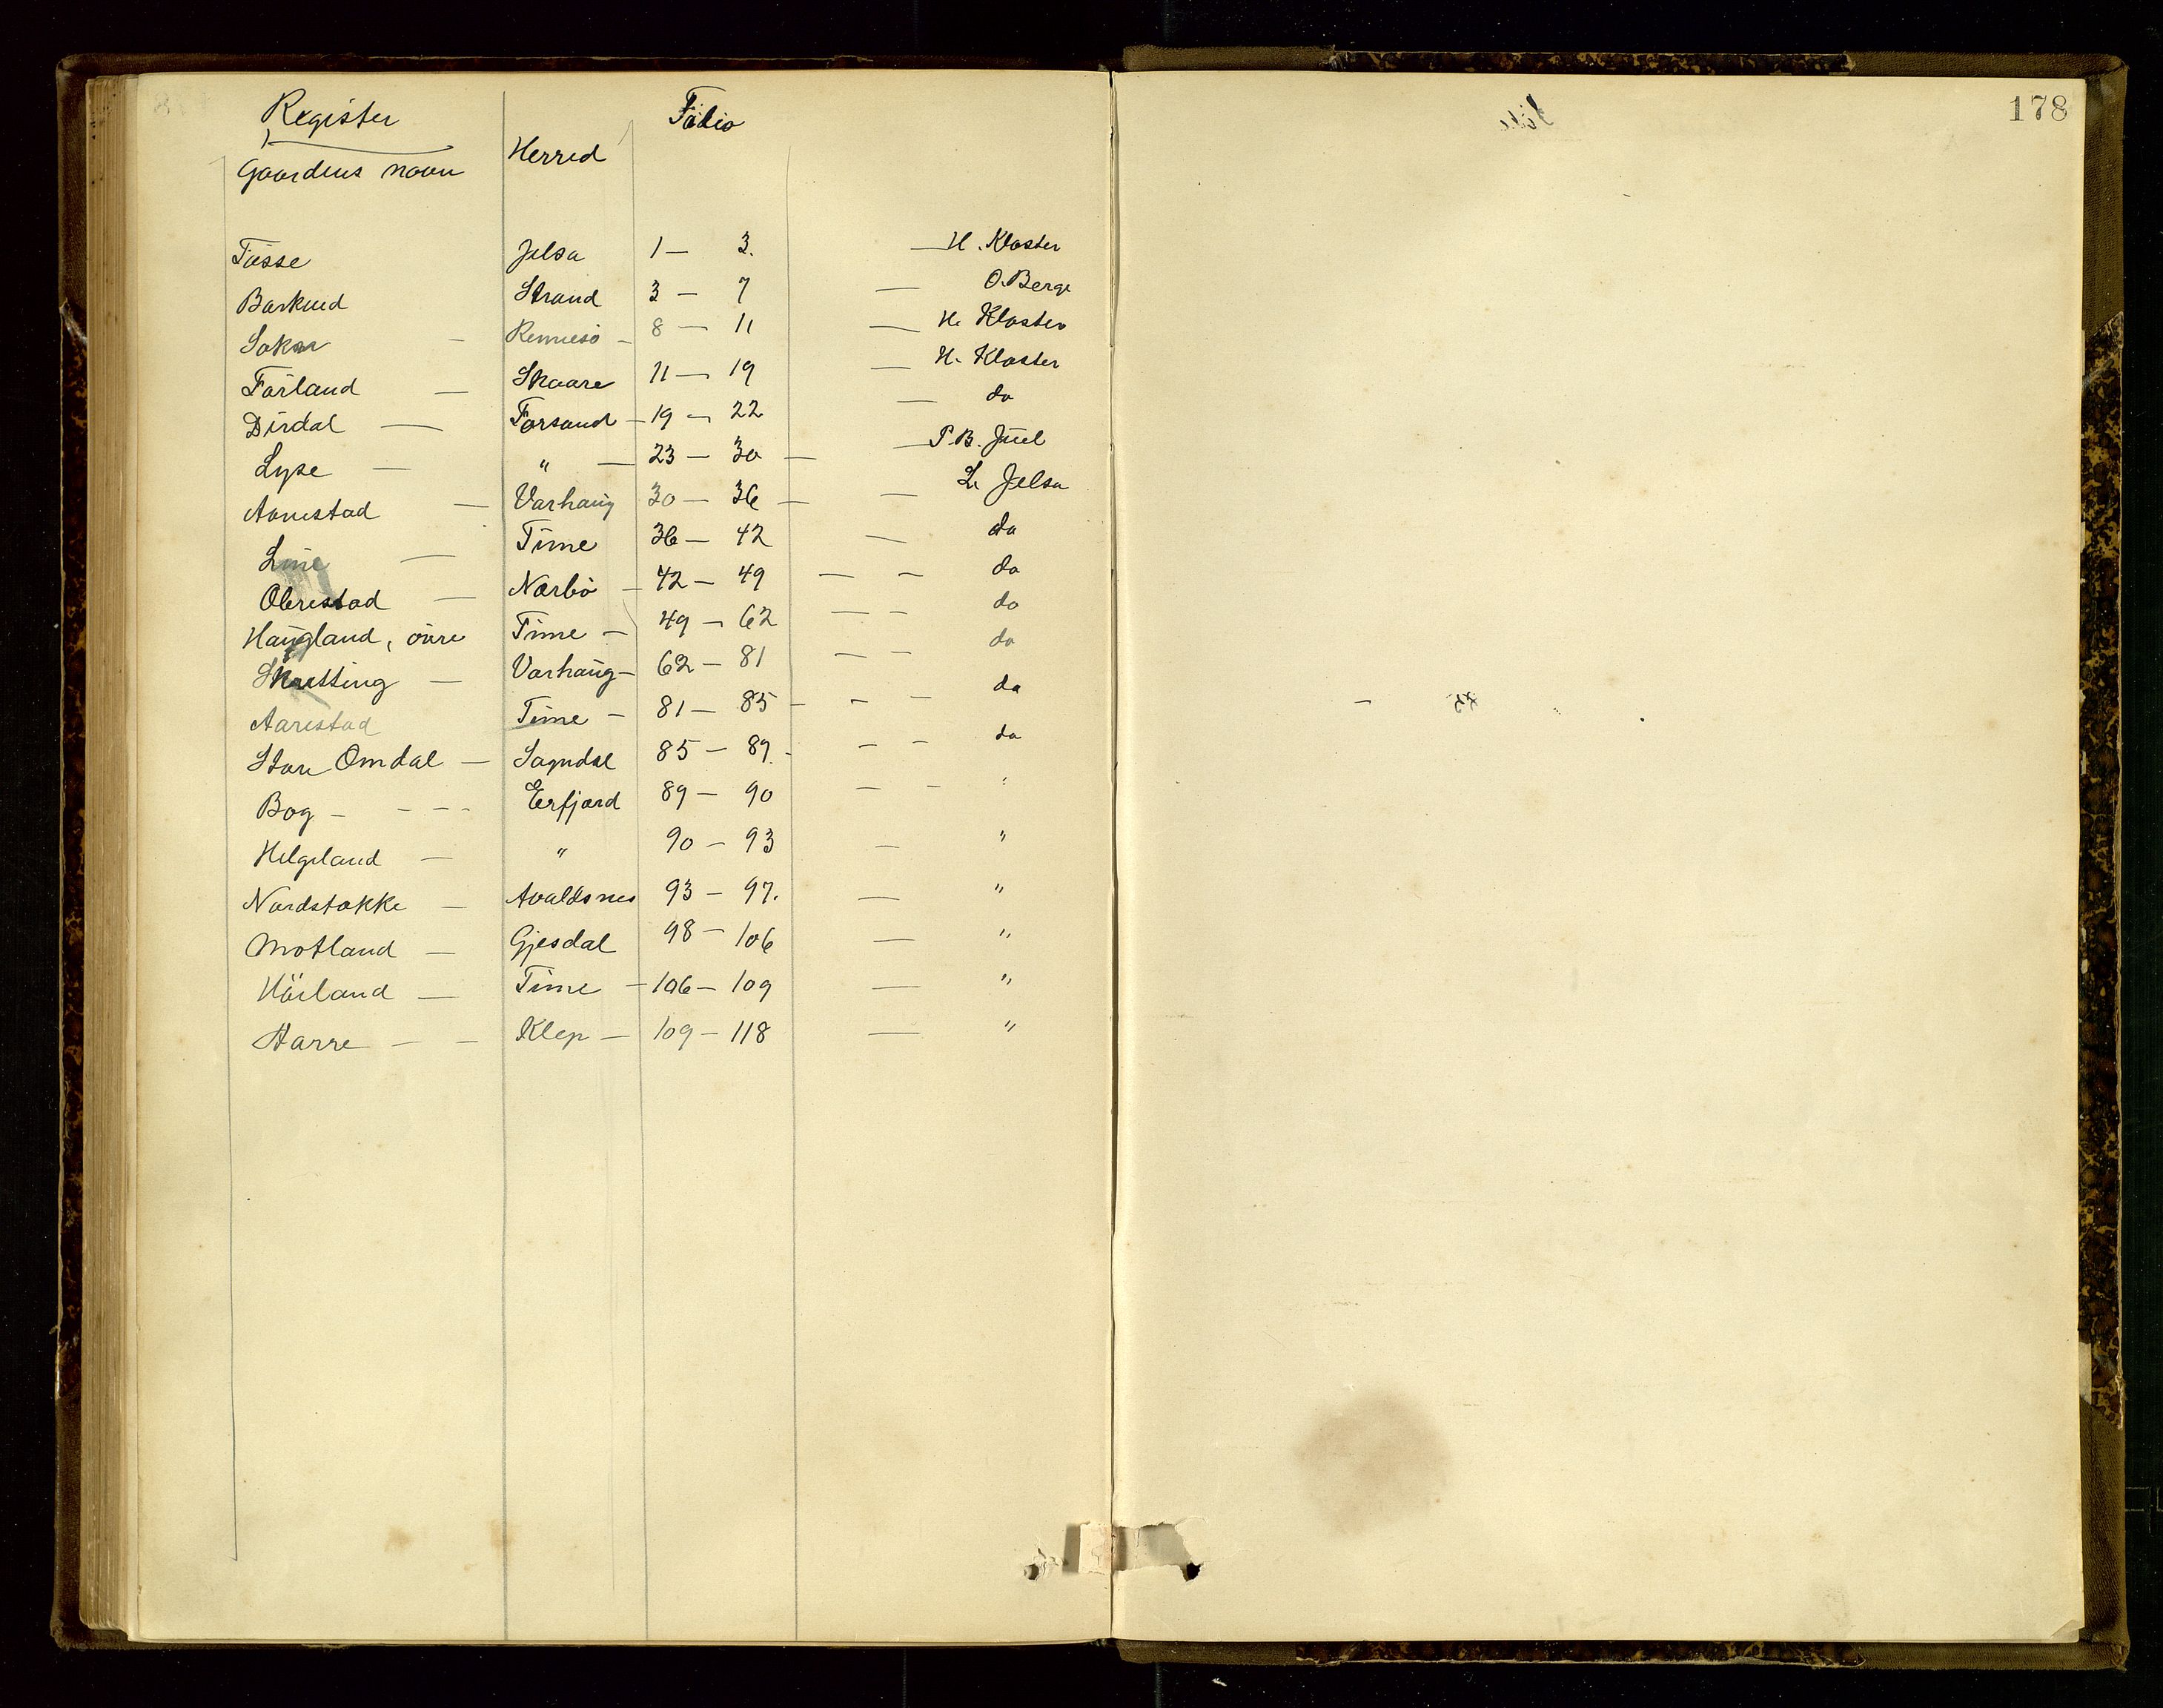 Register
Folio
Gaardens navn Herred
Tøsse Jelsa 1 — 3. — H. Kloster
Barkved Strand 3 — 7 — O. Berge
Sokn — Rennesö — 8 — 11 — H. Kloster
Førland — Skaare 11 — 19 — H. Kloster
Dirdal — Forsand — 19 — 22 — do
Lyse — " — 23 — 30 — — P. B. Juel
Aanestad — Varhaug 30 — 36 — — L. Jelsa
Line — Time 36 — 42 — do
Obrestad — Nærbö — 42 — 49 — — do
Haugland, övre Time — 49 — 62 — — do
Skretting — Varhaug — 62 — 81 — — do
Aarestad Time — 81 — 85 — — — do
Store Omdal — Sogndal 85 — 89. — — — do
Bog — — — — Erfjord 89 — 90 — — "
Helgeland — " 90 — 93 — "
Nordstokke — Avaldsnes 93 — 97. — "
Motland — Gjesdal 98 — 106 — "
Hörland — Time — 106 — 109 — "
Aarre — — Klep — 109 — 118 — "
178